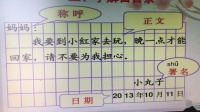 称呼
正文
妈妈：
我要到小红家去玩，晚一点才能
回家，请不要为我担心。
shǔ
署名
小丸子
日期
2013年10月11日